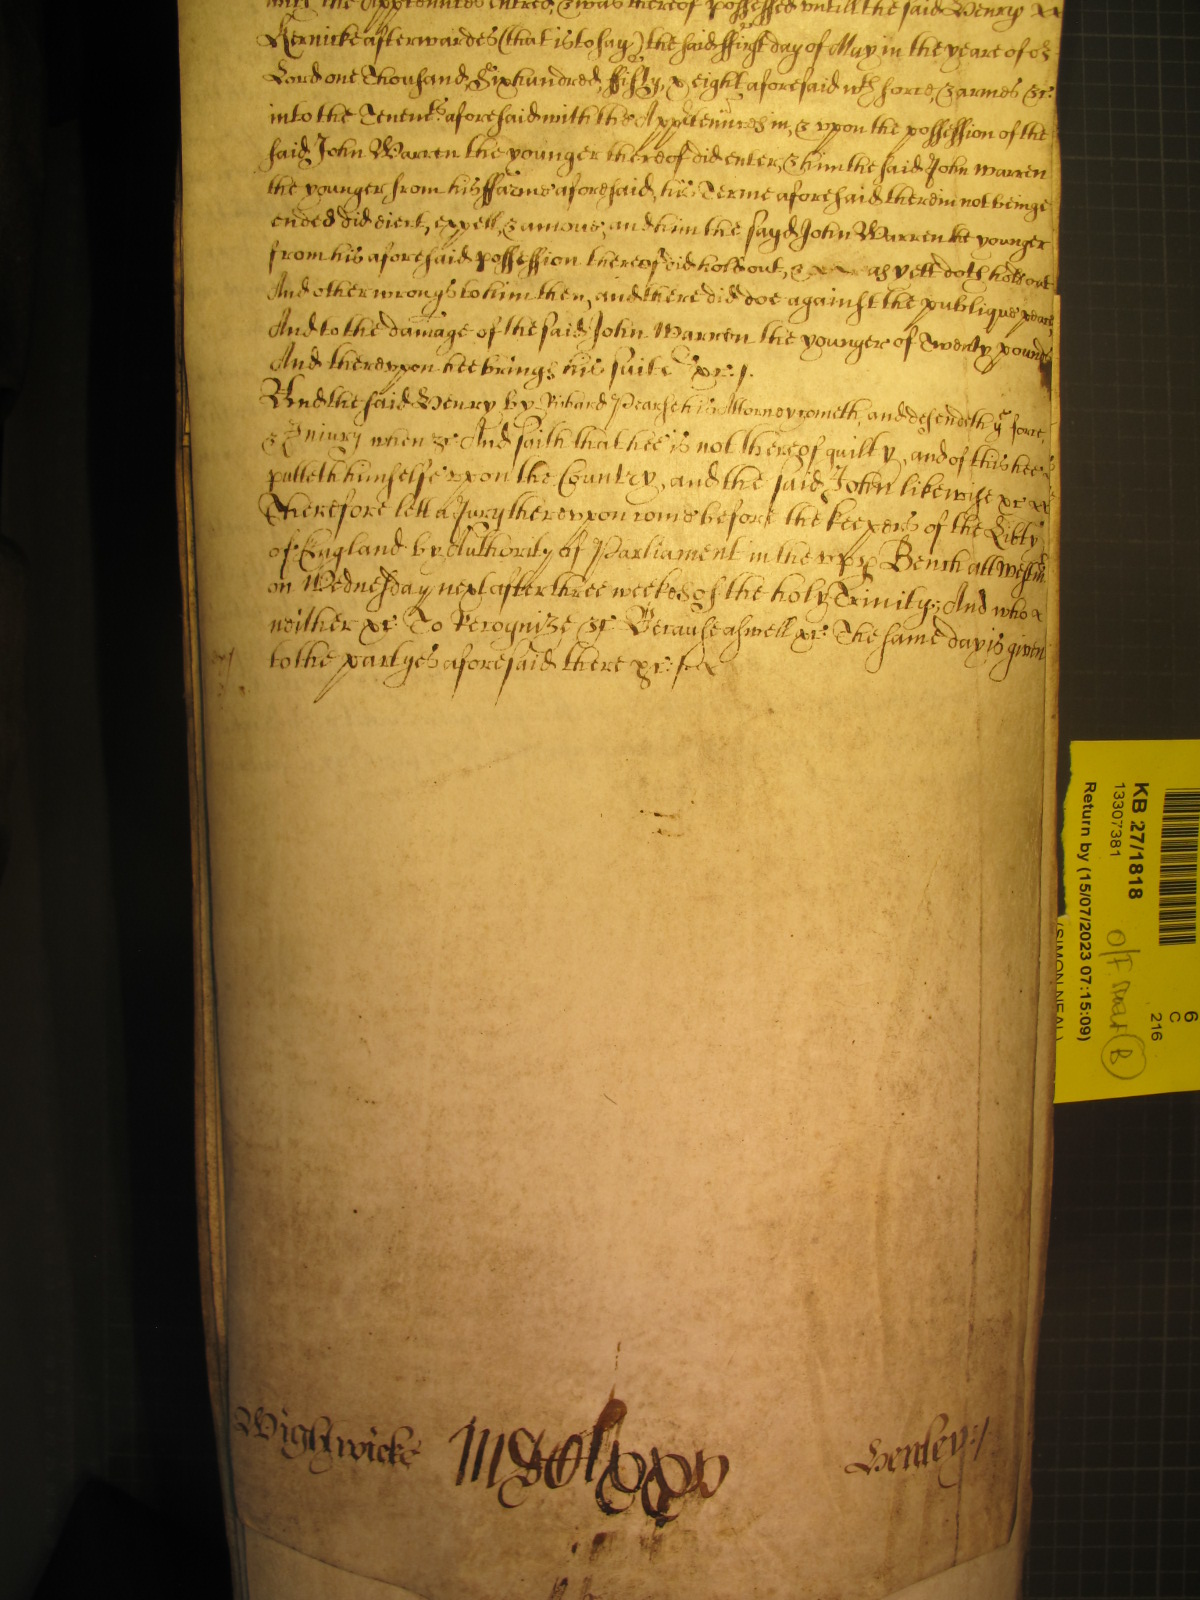 into the Appurtenñces entred, & was thereof possessed untill the said Henry
Kernicke afterwardes (that is to say) the said ffirst day of May in the yeare of oʳ
Lord one Thousand, Six hundred, fifty, & eight aforesaid wth force, & armes &c:
into the Tenemᵗˢ aforesaid with the Appurtenñces in, & vpon the possession of the
said John Warren the younger thereof did enter, & him the said John Warren
the younger from his ffarme aforesaid, his Terme aforesaid therein not beinge
ended did eiect, expell, & amove, and him the sayd John Warren the younger
from his aforesaid possession thereof did hold out, & as yett doth hold out
And other wrongs to him then, and there did doe against the publique peace
And to the damage of the said John Warren the younger of Twenty pounds
And therevpon hee brings his suite &c:
And the said Henry by Richard Pearse his Attorney cometh, and defendeth yᵉ force,
& Iniury when &c And saith that hee is not thereof guilty, and of this hee
putteth himselfe vpon the Country, and the said John likewise &c
Therefore lett a Jury therevpon come before the keepers of the Libty
of England by Authority of Parliament in the vpp Bench att Westm̃
on Wednesday next after three weekes of the holy Trinity; And who
neither &c To Recognize &c Because aswell &c: The same day is given
to the partyes aforesaid there &c:
Wightwicke
Henley
KB 27/1818
13307381
Return by (15/07/2023 07:15:09)
(SIMON NEAL)
6
C
216
B